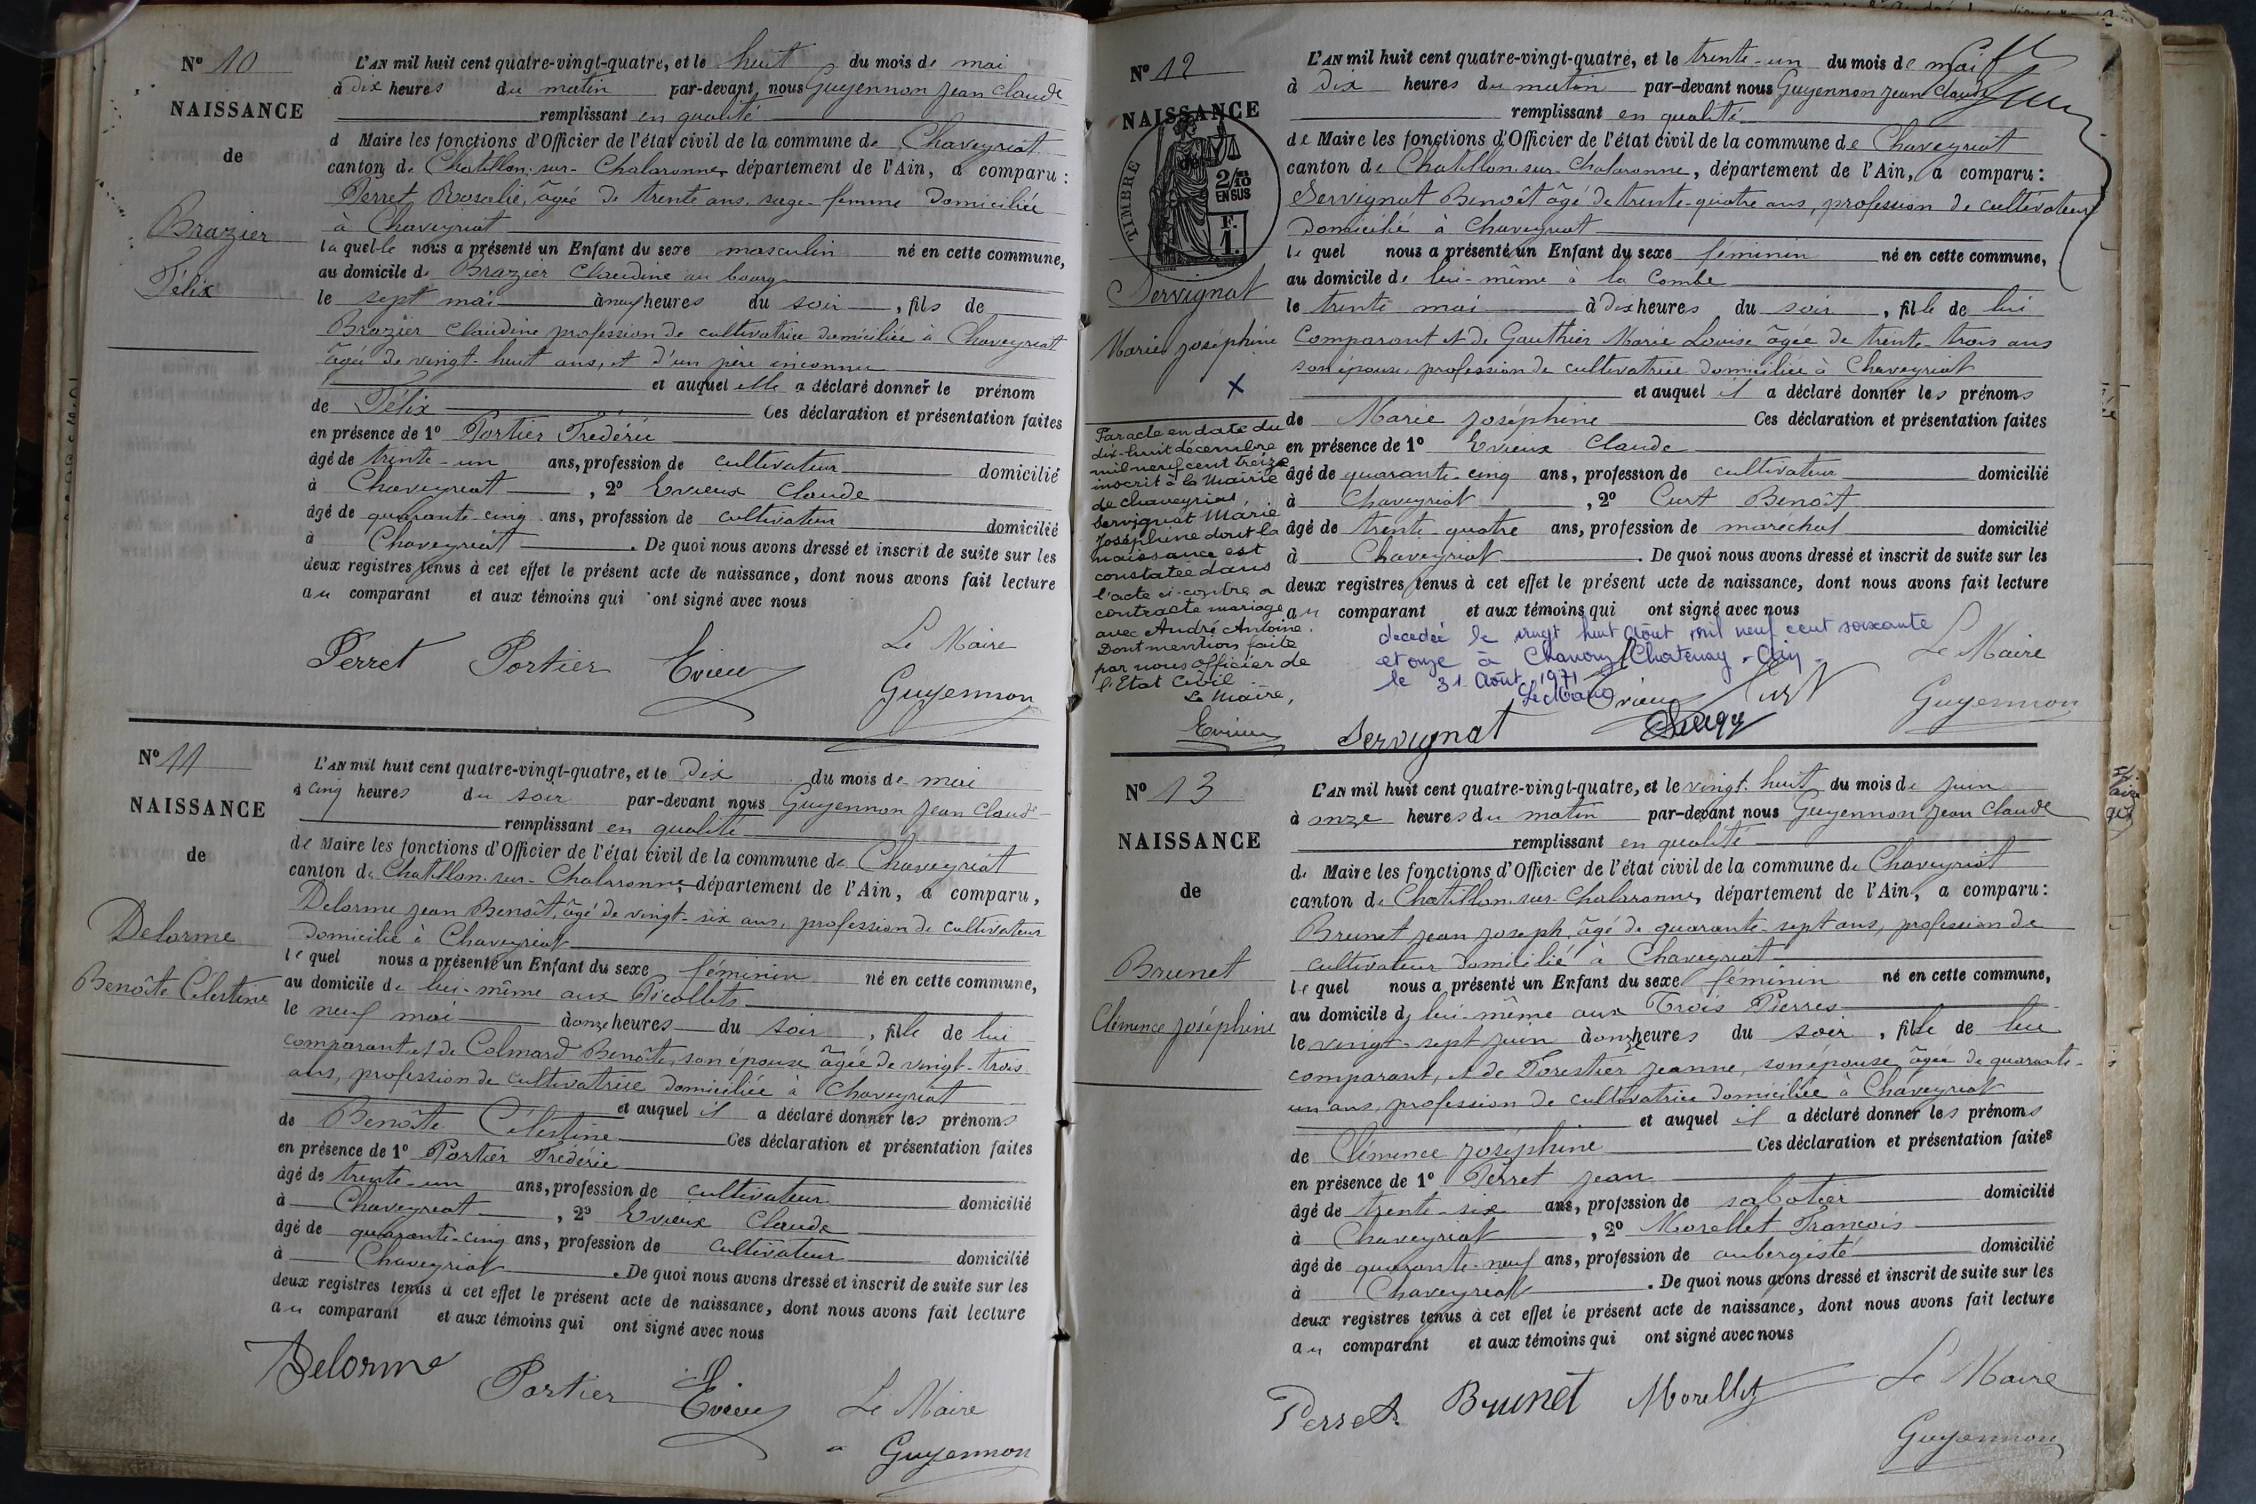 Nº 10
NAISSANCE
de
Brazier
Félix
L'AN mil huit cent quatre-vingt-quatre, et le huit du mois de mai
à dix heures du matin par-devant nous Guyennon Jean Claude
remplissant en qualité
d Maire les fonctions d'Officier de l'état civil de la commune de Chaveyriat
canton de Chatillon-sur-Chalaronne, département de l'Ain, a comparu :
Perret Rosalie, âgée de trente ans, sage-femme domiciliée
à Chaveyriat
laquelle nous a présenté un Enfant du sexe masculin né en cette commune,
au domicile de Brazier Claudine au bourg
le sept mai à neuf heures du soir, fils de
Brazier Claudine profession de cultivatrice domiciliée à Chaveyriat
âgée de vingt-huit ans, et d'un père inconnu
et auquel elle a déclaré donner le prénom
de Félix Ces déclaration et présentation faites
en présence de 1º Portier Frédéric
âgé de trente-un ans, profession de cultivateur domicilié
à Chaveyriat, 2º Evieux Claude
âgé de quarante-cinq ans, profession de cultivateur domicilié
à Chaveyriat. De quoi nous avons dressé et inscrit de suite sur les
deux registres tenus à cet effet le présent acte de naissance, dont nous avons fait lecture
au comparant et aux témoins qui ont signé avec nous
Le Maire
Perret Portier Evieux
Guyennon
Nº 11
NAISSANCE
de
Delorme
Benoîte Célestine
L'AN mil huit cent quatre-vingt-quatre, et le dix du mois de mai
à cinq heures du soir par-devant nous Guyennon Jean Claude
remplissant en qualité
de Maire les fonctions d'Officier de l'état civil de la commune de Chaveyriat
canton de Chatillon-sur-Chalaronne, département de l'Ain, a comparu,
Delorme Jean Benoît, âgé de vingt-six ans, profession de cultivateur
domicilié à Chaveyriat
lequel nous a présenté un Enfant du sexe féminin né en cette commune,
au domicile de lui-même aux Picollets
le neuf mai à onze heures du soir, fille de lui
comparant et de Colmard Benoîte, son épouse âgée de vingt-trois
ans, profession de cultivatrice domiciliée à Chaveyriat
et auquel il a déclaré donner les prénoms
de Benoîte Célestine Ces déclaration et présentation faites
en présence de 1º Portier Frédéric
âgé de trente-un ans, profession de cultivateur domicilié
à Chaveyriat, 2º Evieux Claude
âgé de quarante-cinq ans, profession de cultivateur domicilié
à Chaveyriat. De quoi nous avons dressé et inscrit de suite sur les
deux registres tenus à cet effet le présent acte de naissance, dont nous avons fait lecture
au comparant et aux témoins qui ont signé avec nous
Delorme Portier Evieux Le Maire
Guyennon
Nº 12
NAISSANCE
de
TIMBRE
2/10 EN SUS
F. 1.
Servignat
Marie Joséphine
X
Par acte en date du
dix-huit décembre
mil neuf cent treize
inscrit à la Mairie
de Chaveyriat,
Servignat Marie
Joséphine dont la
naissance est
constatée dans
l'acte ci-contre a
contracté mariage
avec André Antoine.
Dont mention faite
par nous officier de
l'Etat Civil
Le Maire,
Evieux
L'AN mil huit cent quatre-vingt-quatre, et le trente-un du mois de mai
à dix heures du matin par-devant nous Guyennon Jean Claude
remplissant en qualité
de Maire les fonctions d'Officier de l'état civil de la commune de Chaveyriat
canton de Chatillon-sur-Chalaronne, département de l'Ain, a comparu :
Servignat Benoît âgé de trente-quatre ans, profession de cultivateur
domicilié à Chaveyriat
lequel nous a présenté un Enfant du sexe féminin né en cette commune,
au domicile de lui-même à la Combe
le trente mai à dix heures du soir, fille de lui
comparant et de Gauthier Marie Louise âgée de trente-trois ans
son épouse, profession de cultivatrice domiciliée à Chaveyriat
et auquel il a déclaré donner les prénoms
de Marie Joséphine Ces déclaration et présentation faites
en présence de 1º Evieux Claude
âgé de quarante-cinq ans, profession de cultivateur domicilié
à Chaveyriat, 2º Curt Benoît
âgé de trente-quatre ans, profession de maréchal domicilié
à Chaveyriat. De quoi nous avons dressé et inscrit de suite sur les
deux registres tenus à cet effet le présent acte de naissance, dont nous avons fait lecture
au comparant et aux témoins qui ont signé avec nous
decedée le vingt huit août mil neuf cent soixante
et onze à Chanoz Chatenay - Ain -
le 31 Août 1971
Le Maire
Le Maire
Evieux Curt
Guyennon
Servignat
Nº 13
NAISSANCE
de
Brunet
Clémence Joséphine
L'AN mil huit cent quatre-vingt-quatre, et le vingt-huit du mois de juin
à onze heures du matin par-devant nous Guyennon Jean Claude
remplissant en qualité
de Maire les fonctions d'Officier de l'état civil de la commune de Chaveyriat
canton de Chatillon-sur-Chalaronne, département de l'Ain, a comparu :
Brunet Jean Joseph, âgé de quarante-sept ans, profession de
cultivateur domicilié à Chaveyriat
lequel nous a présenté un Enfant du sexe féminin né en cette commune,
au domicile de lui-même aux Trois Pierres
le vingt-sept juin à onze heures du soir, fille de lui
comparant, et de Forestier Jeanne, son épouse, âgée de quarante-
un ans, profession de cultivatrice domiciliée à Chaveyriat
et auquel il a déclaré donner les prénoms
de Clémence Joséphine Ces déclaration et présentation faites
en présence de 1º Perret Jean
âgé de trente-six ans, profession de sabotier domicilié
à Chaveyriat, 2º Morellet François
âgé de quarante-neuf ans, profession de aubergiste domicilié
à Chaveyriat. De quoi nous avons dressé et inscrit de suite sur les
deux registres tenus à cet effet le présent acte de naissance, dont nous avons fait lecture
au comparant et aux témoins qui ont signé avec nous
Perret Brunet Morellet Le Maire
Guyennon